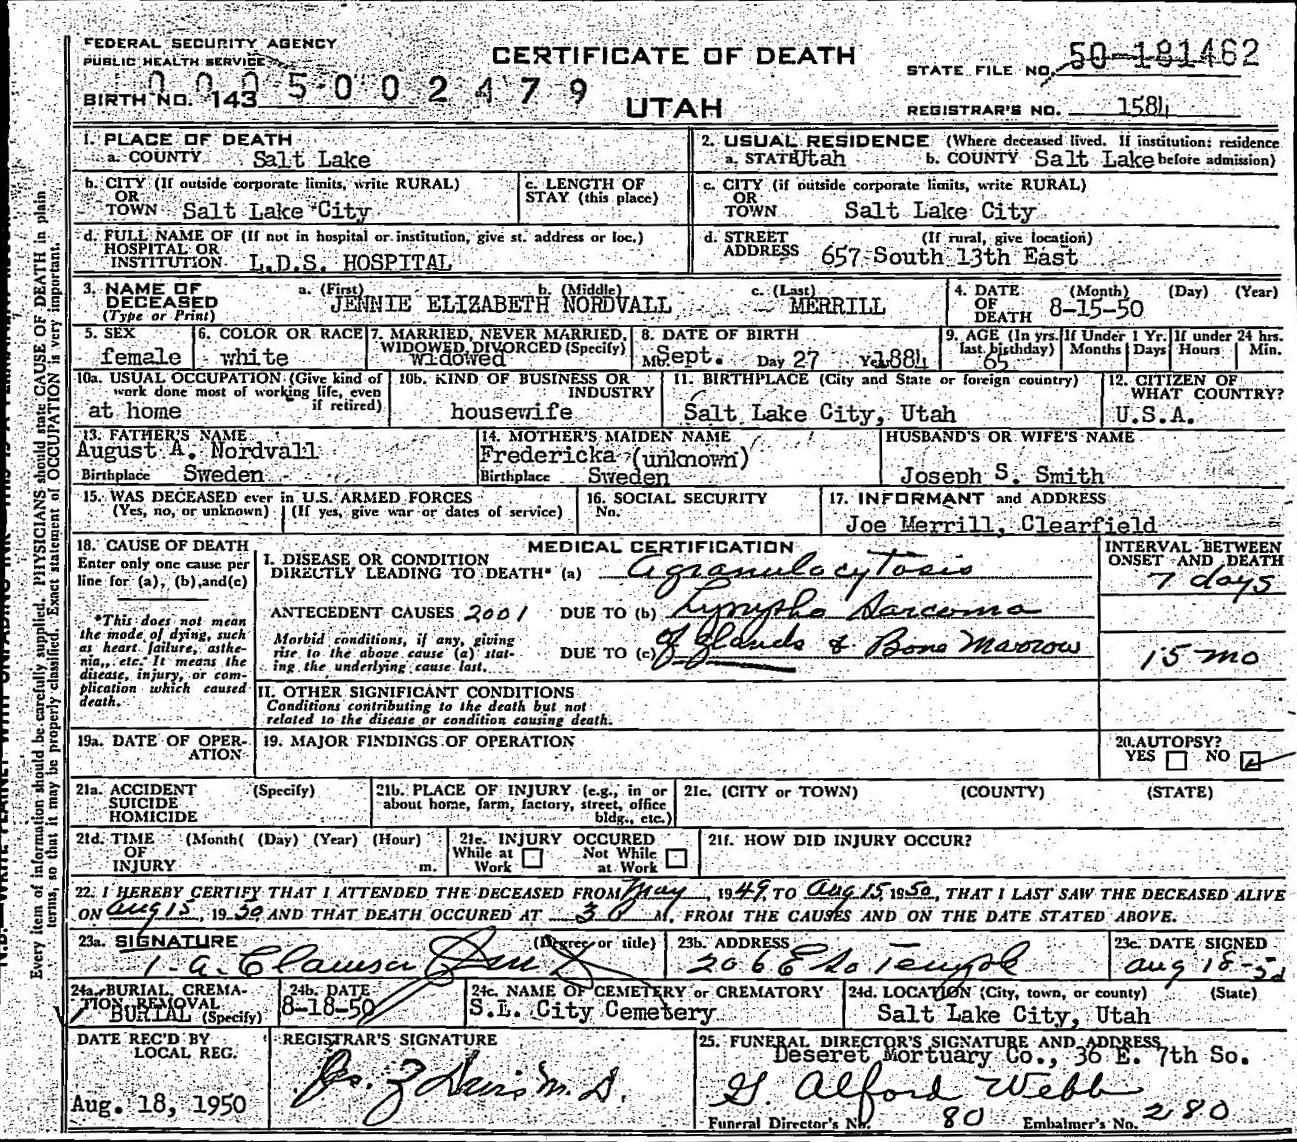 FEDERAL SECURITY AGENCY
PUBLIC HEALTH SERVICE
CERTIFICATE OF DEATH
STATE FILE NO. 50-181462
BIRTH NO. 143
0005002479
UTAH
REGISTRAR'S NO. 1584
1. PLACE OF DEATH
a. COUNTY Salt Lake
2. USUAL RESIDENCE (Where deceased lived. If institution: residence
a. STATE Utah b. COUNTY Salt Lake before admission)
b. CITY (If outside corporate limits, write RURAL)
OR
TOWN Salt Lake City
c. LENGTH OF
STAY (this place)
c. CITY (if outside corporate limits, write RURAL)
OR
TOWN Salt Lake City
d. FULL NAME OF (If not in hospital or institution, give st. address or loc.)
HOSPITAL OR
INSTITUTION L.D.S. HOSPITAL
d. STREET (If rural, give location)
ADDRESS 657 South 13th East
3. NAME OF DECEASED
(Type or Print)
a. (First) b. (Middle) c. (Last)
JENNIE ELIZABETH NORDVALL MERRILL
4. DATE OF DEATH (Month) (Day) (Year)
8-15-50
5. SEX
female
6. COLOR OR RACE
white
7. MARRIED, NEVER MARRIED,
WIDOWED, DIVORCED (Specify)
widowed
8. DATE OF BIRTH
Mo. Sept. Day 27 Yr. 1884
9. AGE (In yrs. last birthday)
65
If Under 1 Yr.
Months Days
If under 24 hrs.
Hours Min.
10a. USUAL OCCUPATION (Give kind of
work done most of working life, even
if retired)
at home
10b. KIND OF BUSINESS OR
INDUSTRY
housewife
11. BIRTHPLACE (City and State or foreign country)
Salt Lake City, Utah
12. CITIZEN OF
WHAT COUNTRY?
U.S.A.
13. FATHER'S NAME
August A. Nordvall
Birthplace Sweden
14. MOTHER'S MAIDEN NAME
Fredericka (unknown)
Birthplace Sweden
HUSBAND'S OR WIFE'S NAME
Joseph S. Smith
15. WAS DECEASED ever in U.S. ARMED FORCES
(Yes, no, or unknown) (If yes, give war or dates of service)
16. SOCIAL SECURITY
No.
17. INFORMANT and ADDRESS
Joe Merrill, Clearfield
18. CAUSE OF DEATH
Enter only one cause per
line for (a), (b), and (c)
*This does not mean
the mode of dying, such
as heart failure, asthe-
nia, etc. It means the
disease, injury, or com-
plication which caused
death.
MEDICAL CERTIFICATION
I. DISEASE OR CONDITION
DIRECTLY LEADING TO DEATH* (a) Agranulocytosis
ANTECEDENT CAUSES 2001 DUE TO (b) Lympho Sarcoma
Morbid conditions, if any, giving
rise to the above cause (a) stat-
ing the underlying cause last.
DUE TO (c) of glands & Bone Marrow
INTERVAL BETWEEN
ONSET AND DEATH
7 days
15 mo
II. OTHER SIGNIFICANT CONDITIONS
Conditions contributing to the death but not
related to the disease or condition causing death.
19a. DATE OF OPER-
ATION
19. MAJOR FINDINGS OF OPERATION
20. AUTOPSY?
YES NO
21a. ACCIDENT (Specify)
SUICIDE
HOMICIDE
21b. PLACE OF INJURY (e.g., in or
about home, farm, factory, street, office
bldg., etc.)
21c. (CITY or TOWN) (COUNTY) (STATE)
21d. TIME (Month( (Day) (Year) (Hour)
OF
INJURY m.
21e. INJURY OCCURED
While at Work Not While at Work
21f. HOW DID INJURY OCCUR?
22. I HEREBY CERTIFY THAT I ATTENDED THE DECEASED FROM May, 1949, TO Aug 15, 1950, THAT I LAST SAW THE DECEASED ALIVE
ON Aug 15, 1950 AND THAT DEATH OCCURED AT 3 M, FROM THE CAUSES AND ON THE DATE STATED ABOVE.
23a. SIGNATURE (Degree or title)
23b. ADDRESS
206 E So Temple
23c. DATE SIGNED
Aug 18-50
24a. BURIAL, CREMA-
TION, REMOVAL
BURIAL (Specify)
24b. DATE
8-18-50
24c. NAME OF CEMETERY or CREMATORY
S.L. City Cemetery
24d. LOCATION (City, town, or county) (State)
Salt Lake City, Utah
DATE REC'D BY
LOCAL REG.
Aug. 18, 1950
REGISTRAR'S SIGNATURE
25. FUNERAL DIRECTOR'S SIGNATURE AND ADDRESS
Deseret Mortuary Co., 36 E. 7th So.
G. Alford Webb
Funeral Director's No. 80 Embalmer's No. 280
Every item of information should be carefully supplied. PHYSICIANS should state CAUSE OF DEATH in plain
terms, so that it may be properly classified. Exact statement of OCCUPATION is very important.